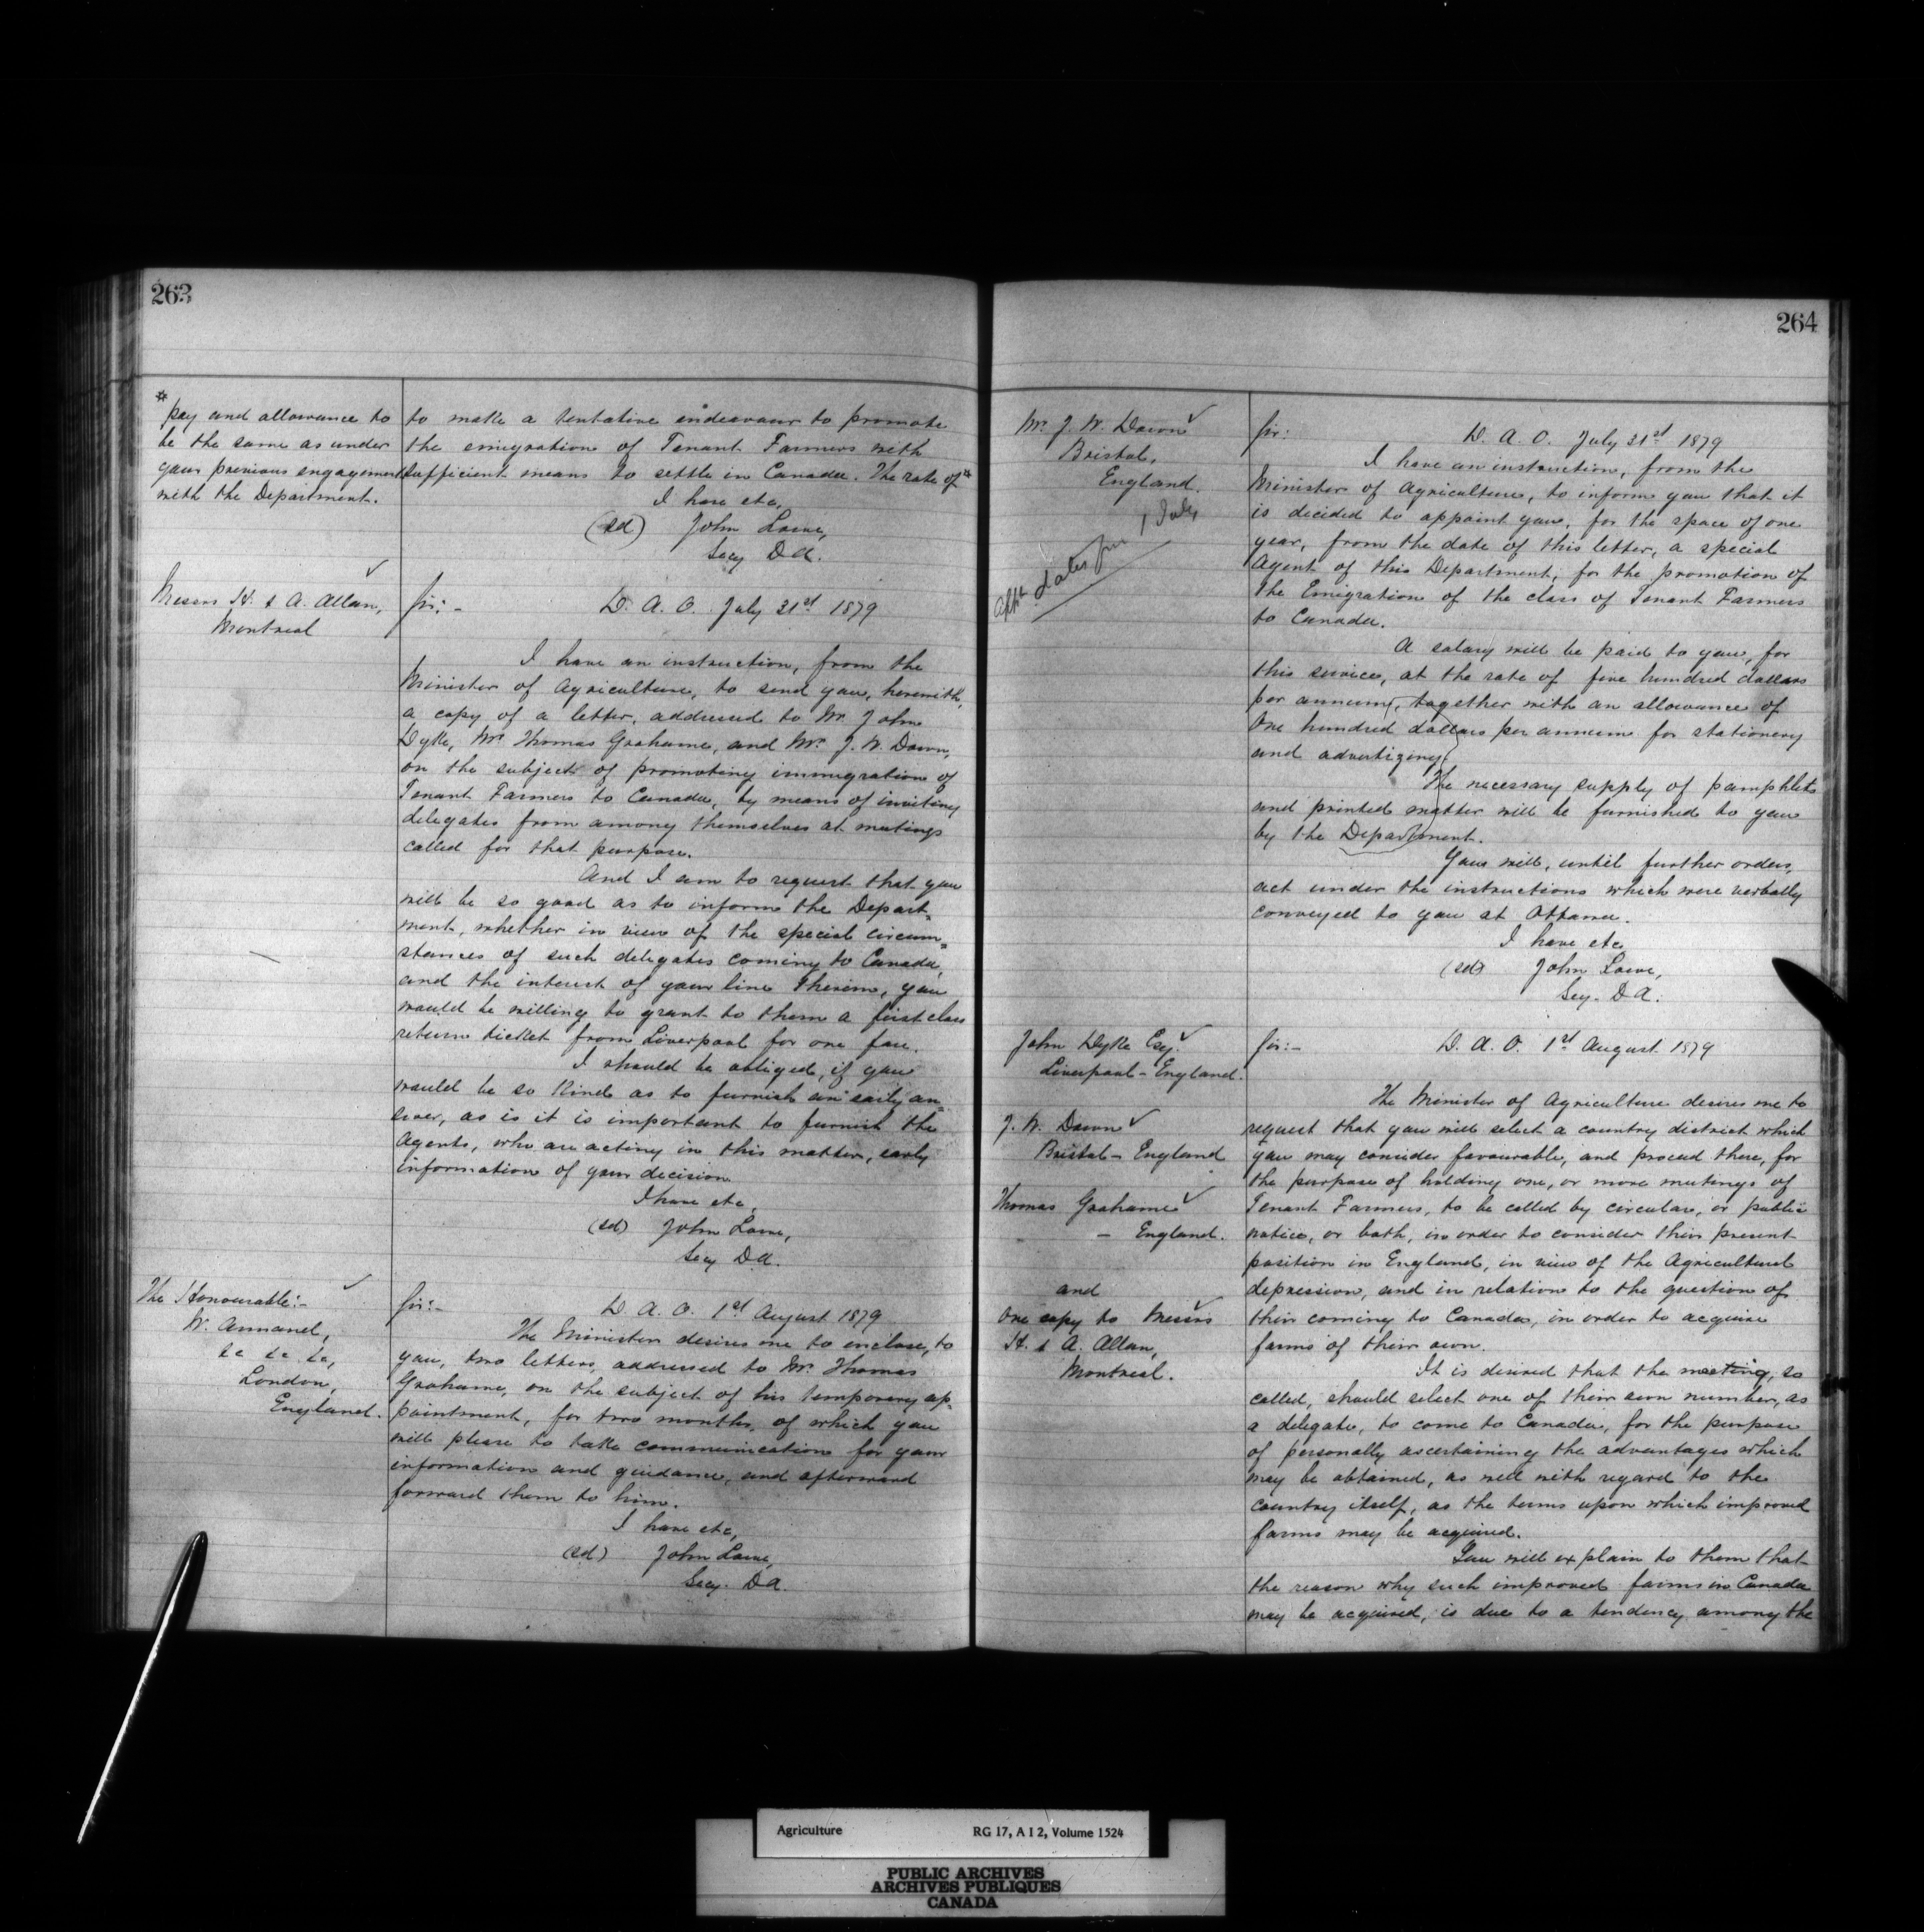 263
*
pay and allowance to
be the same as under
your previous engagement
with the Department.
to make a tentative endeavour to promote
the emigration of Tenant Farmers with
sufficient means to settle in Canada. The rate of*
I have etc,
(sd) John Lowe,
Secy D A.
Messrs H. & A. Allan,
Montreal
Sir:- D. A. O. July 31st 1879
I have an instruction, from the
Minister of Agriculture, to send you, herewith,
a copy of a letter, addressed to Mr. John
Dyke, Mr. Thomas Grahame, and Mr. J. W. Down,
on the subject of promoting immigration of
Tenant Farmers to Canada, by means of inviting
delegates from among themselves at meetings
called for that purpose.
And I am to request that you
will be so good as to inform the Depart=
ment, whether in view of the special circum=
stances of such delegates coming to Canada,
and the interest of your line therein, you
would be willing to grant to them a first class
return ticket from Liverpool for one fare.
I should be obliged, if you
would be so kind as to furnish an early an=
swer, as is it is important to furnish the
Agents, who are acting in this matter, early
information of your decision
I have etc,
(sd) John Lowe,
Secy D A.
The Honourable:-
W. Annand,
&c &c &c,
London,
England.
Sir:- D. A. O. 1st August 1879
The Minister desires me to enclose, to
you, two letters, addressed to Mr. Thomas
Grahame, on the subject of his temporary ap=
pointment, for two months, of which you
will please to take communication for your
information and guidance, and afterward
forward them to him.
I have etc,
(sd) John Lowe,
Secy. D A.
264
Mr. J. W. Down
Bristol,
England.
dates from 1 July
Sir: D. A. O. July 31st 1879
I have an instruction, from the
Minister of Agriculture, to inform you that it
is decided to appoint you, for the space of one
year, from the date of this letter, a special
Agent of this Department, for the promotion of
the Emigration of the class of Tenant Farmers
to Canada.
A salary will be paid to you, for
this service, at the rate of five hundred dollars
per annum, together with an allowance of
One hundred dollars per annum for stationery
and advertizing.
The necessary supply of pamphlets
and printed matter will be furnished to you
by the Department.
You will, until further orders,
act under the instructions which were verbally
conveyed to you at Ottawa.
I have etc
(sd) John Lowe,
Secy. D A.
John Dyke Esq.
Liverpool - England.
J. W. Down
Bristol - England
Thomas Grahame
- England.
and
One copy to Messrs
H. & A. Allan,
Montreal.
Sir:- D. A. O. 1st August 1879
The Minister of Agriculture desires me to
request that you will select a country district which
you may consider favourable, and proceed there, for
the purpose of holding one, or more meetings of
Tenant Farmers, to be called by circulars, or public
notice, or both, in order to consider their present
position in England, in view of the Agricultural
depression, and in relation to the question of
their coming to Canada, in order to acquire
farms of their own.
It is desired that the meeting, so
called, should select one of their own number, as
a delegate, to come to Canada, for the purpose
of personally ascertaining the advantages which
may be obtained, as well with regard to the
country itself, as the terms upon which improved
farms may be acquired.
You will explain to them that
the reason why such improved farms in Canada
may be acquired, is due to a tendency among the
Agriculture RG 17, A I 2, Volume 1524
PUBLIC ARCHIVES
ARCHIVES PUBLIQUES
CANADA